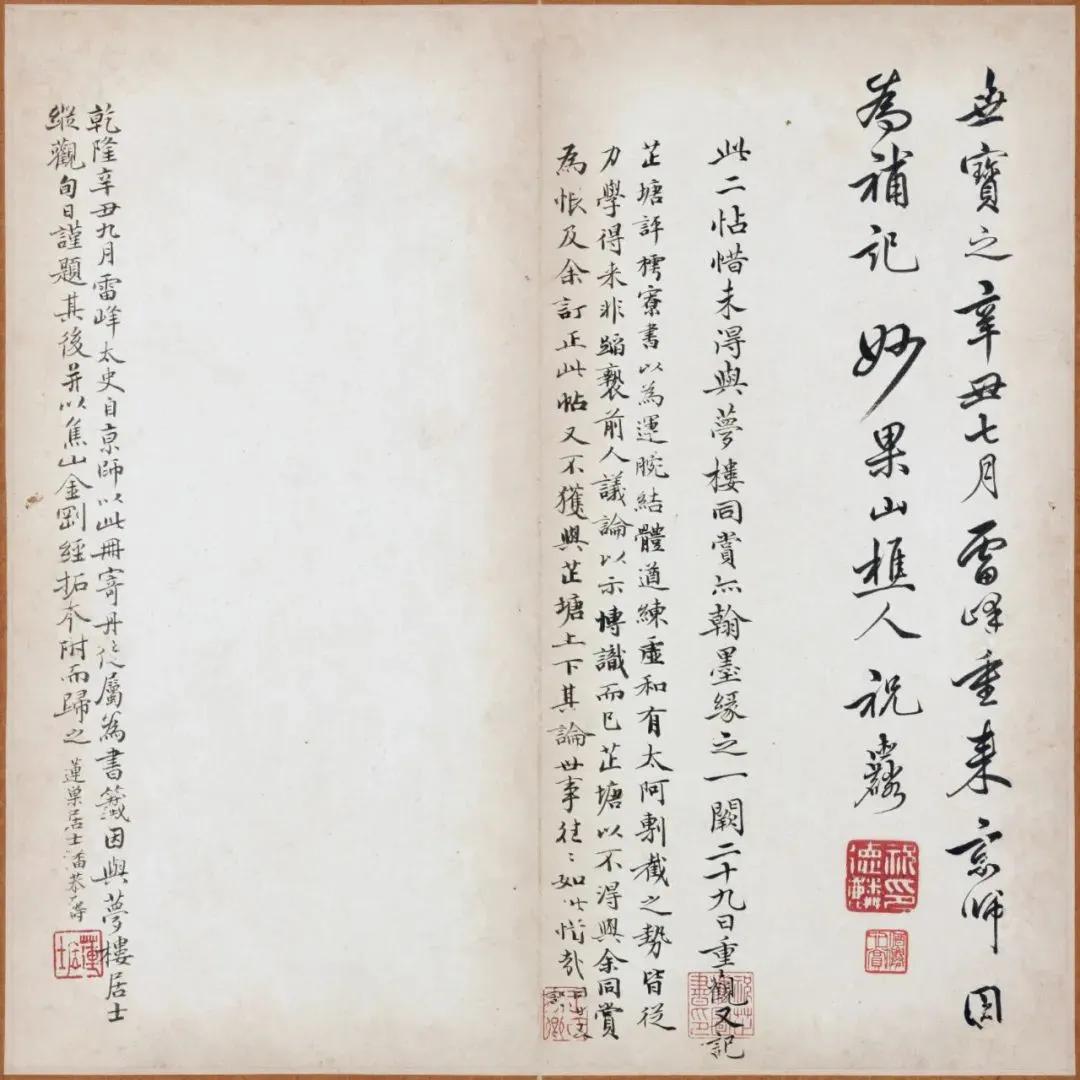 無寶之辛丑七月雷峰重來京師因
為補記 妙果山樵人祝德麟
此二帖惜未得與夢樓同賞亦翰墨緣之一闕二十九日重觀又記
芷塘評樗寮書以為運腕結體遒練虛和有太阿剸截之勢皆從
力學得來非蹈褻前人議論以示博識而已芷塘以不得與余同賞
為恨及余訂正此帖又不獲與芷塘上下其論世事往〻如此惜哉
乾隆辛丑九月雷峰太史自京師以此冊寄丹徒屬為書籤因與夢樓居士
縱觀旬日謹題其後并以焦山金剛經拓本附而歸之 蓮巢居士潘恭壽
祝印德麟